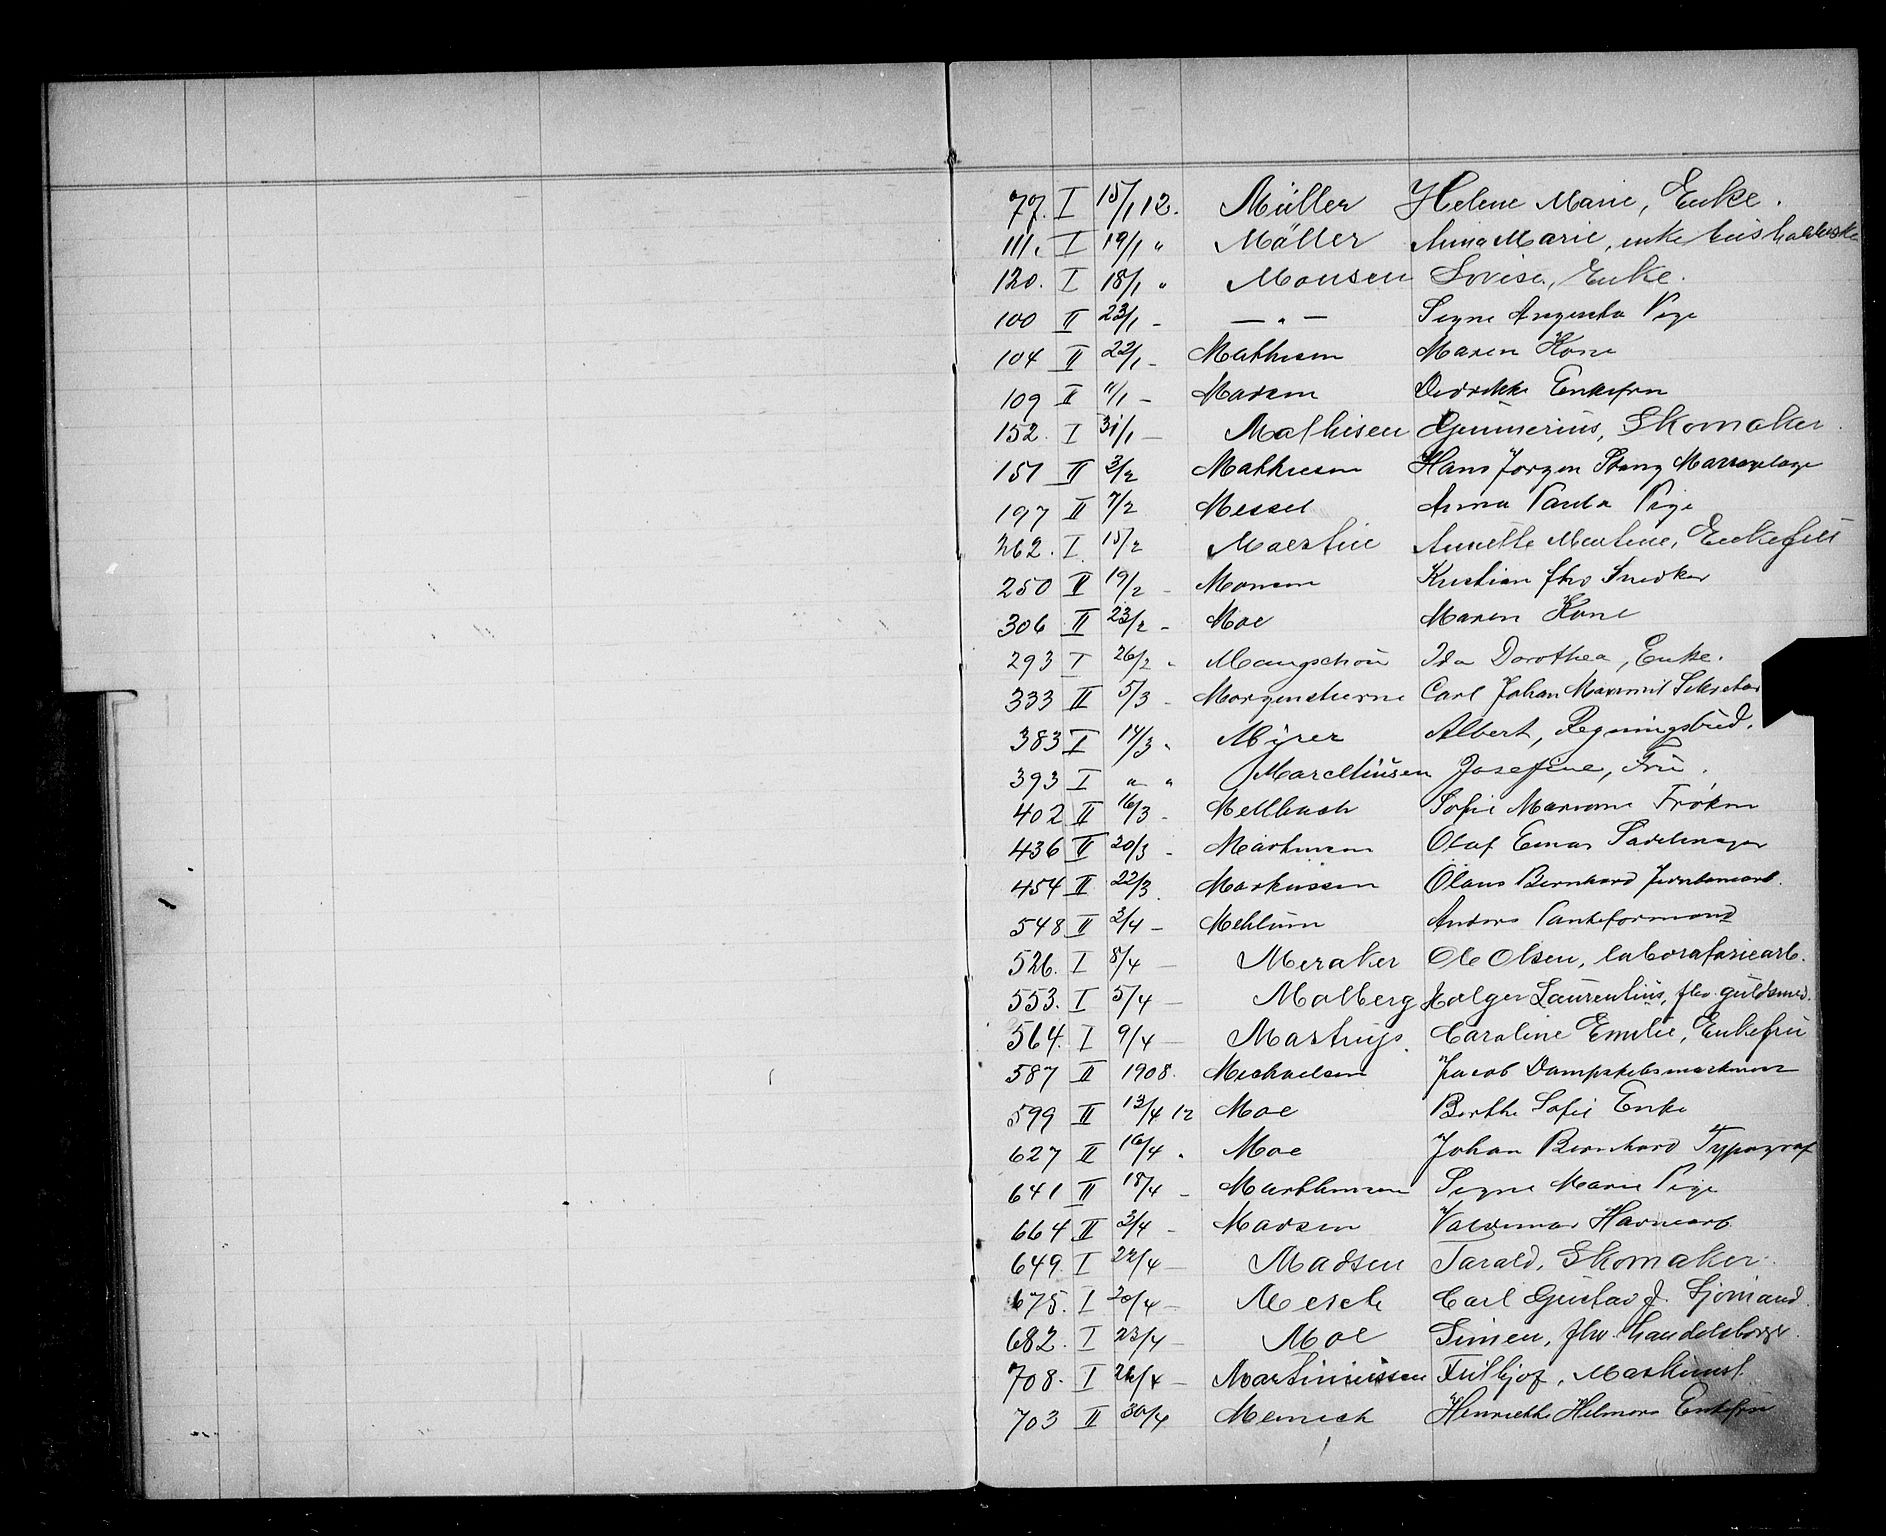 77. I 15/1 12. Müller Helene Marie, Enke.
111. I 19/1 " Möller Anna Marie, enke husholderske
120. I 18/1 " Monsen Lovise, Enke.
100 II 23/1 - — " — Signe Augusta Pige
104 II 22/1 - Mathisen Maren Kone
109 II 11/1 - Madsen Didrikke Enkefru
152. I 31/1 — Mathisen Gunnerius, Skomaker.
157 II 3/2 Mathiesen Hans Jørgen Stang
197 II 7/2 Messel Anna Paula Pige
262. I 15/2 Maestue Annette Martine, Enkefru
250 II 19/2 - Monsen Kristian fhv Snedker
306 II 23/2 - Moe Maren Kone
293 I 26/2 " Mangschou Ida Dorothea, Enke.
333 II 5/3 - Morgenstierne Carl Johan Sekretær
383 I 14/3 " Myrer Albert, Regningsbud.
393 I " " Marceliusen Josefine, Fru.
402 II 16/3 - Mellbach Sofie Mariane Frøken
436 II 20/3 - Martinsen Olaf Einar Sadelmager
454 II 22/3. Markussen Olaus Bernhard Jernbanearb.
548 II 3/4 - Mehlum Anders Pankeformand
526. I 8/4 — Meraker Ole Olsen, laboratoriearb.
553. I 5/4 — Malberg Holger Laurentius, fhv. guldsmed.
564. I 9/4 — Mastrup. Caroline Emilie, Enkefru
587 II 1908. Michaelsen Jacob
599 II 13/4 12 Moe Berthe Sofie Enke
627 II 16/4 " Moe Johan Bernhard Typograf
641 II 18/4 - Marthinsen Signe Marie Pige
664 II 3/4 - Madsen Valdemar Havnearb
649. I 22/4 — Madsen Tarald, Skomaker.
675. I 20/4 — Mesch Carl Gustav J. Sjømand.
682. I 23/4 — Moe Simen, fhv. handelsborger.
708. I 26/4 — Martiniussen Fritjof, Maskinist.
703 II 30/4 Meinich Henriette Enkefru